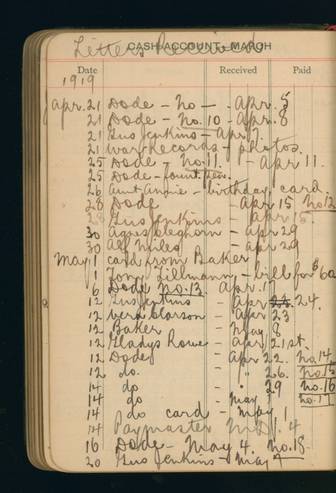 Letters Received
CASH ACCOUNT. MARCH
Date Received Paid
1919
Apr. 21 Dode - No - Apr. 5
21 Dode - No. 10 - Apr. 8
21 Gus Jenkins - Apr 7.
21 War Records - photos.
25 Dode - No. 11. - Apr 11.
25 Dode - fount. pen.
26 Aunt Angie - birthday card.
28 Dode - Apr 15 No. 12
28 Gus Jenkins - Apr 15.
30 Agnes Cleghorn - Apr 29
30 Alf Miles - Apr 29
May 1 card from Baker
1 Tom Tillmann - bill for $
6 Dode No. 13. Apr. 17
12 Gus Jenkins - Apr 24.
12 Vera Clarson - Apr 23
12 Baker - May 8
12 Gladys Rowe - Apr 21st.
12 Dode - Apr 22. No. 14
12 do. - " 26. No. 15
14 do - " 29 No. 16
14 do - May 1 No. 17
14 do card - May 1
14 Paymaster M.D. 1. 4
16 Dode - May 4. No. 18.
20 Gus Jenkins - May 7